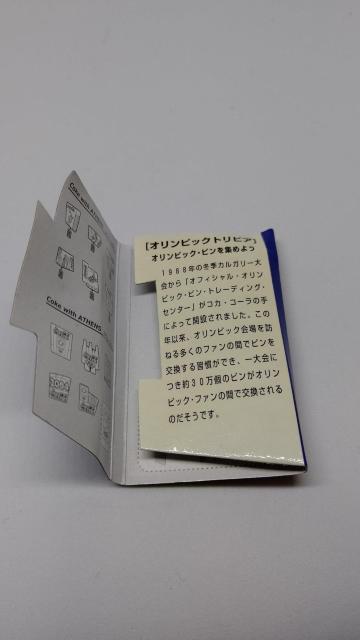 Coke with ATHENS
Coke with ATHENS
2004
[オリンピックトリビア]
オリンピック・ピンを集めよう
1988年の冬季カルガリー大
会から「オフィシャル・オリン
ピック・ピン・トレーディング・
センター」がコカ・コーラの手
によって開設されました。この
年以来、オリンピック会場を訪
ねる多くのファンの間でピンを
交換する習慣ができ、一大会に
つき約30万個のピンがオリン
ピック・ファンの間で交換される
のだそうです。